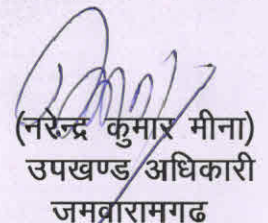 (नरेन्द्र कुमार मीना)
उपखण्ड अधिकारी
जमवारामगढ़